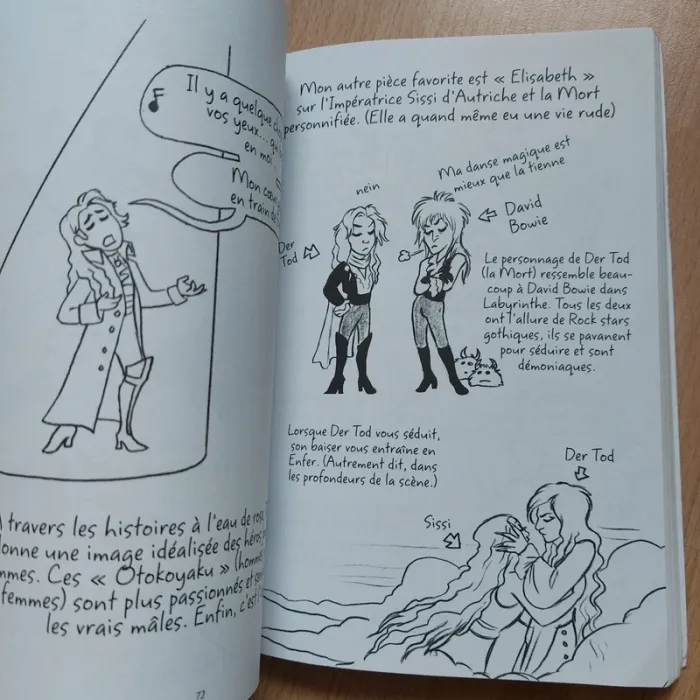 Il y a quelque
vos yeux...
en moi
Mon
en train de
A travers les histoires à l'eau de
donne une image idéalisée des
Ces « Otokoyaku »
femmes) sont plus passionnés et
les vrais mâles. Enfin, c'est
72
Mon autre pièce favorite est « Elisabeth »
sur l'Impératrice Sissi d'Autriche et la Mort
personnifiée. (Elle a quand même eu une vie rude)
nein
Ma danse magique est
mieux que la tienne
Der
Tod
David
Bowie
Le personnage de Der Tod
(la Mort) ressemble beau-
coup à David Bowie dans
Labyrinthe. Tous les deux
ont l'allure de Rock stars
gothiques, ils se pavanent
pour séduire et sont
démoniaques.
Lorsque Der Tod vous séduit,
son baiser vous entraîne en
Enfer. (Autrement dit, dans
les profondeurs de la scène.)
Der Tod
Sissi